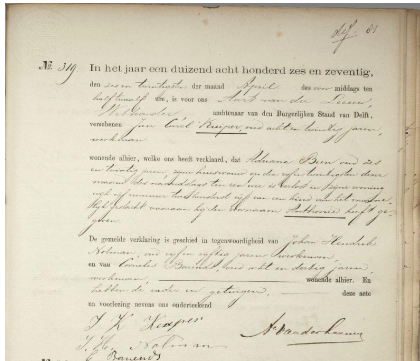 31
No. 319. In het jaar een duizend acht honderd zes en zeventig,
den zes en twintigste der maand April des voor middags ten
half twaalf ure, is voor ons Aart van der Leeuw,
Wethouder ambtenaar van den Burgerlijken Stand van Delft,
verschenen Jan Carel Kuiper, oud acht en twintig jaren,
werkman
wonende alhier, welke ons heeft verklaard, dat Adriana Bom oud zes
en twintig jaren, zijne huisvrouw en den vijf en twintigsten dezer
maand des namiddags ten een ure is verlost in zijne woning
wijk vijf nummer honderd vijf van een kind van het manne-
lijk geslacht waaraan hij den voornaam Anthonie heeft ge-
geven
De gemelde verklaring is geschied in tegenwoordigheid van Johan Hendrik
Notman, oud vijf en vijftig jaren, werkman
en van Cornelis oud acht en dertig jaren,
werkman wonende alhier. En
hebben de vader en getuigen, deze acte
na voorlezing nevens ons onderteekend
J K Kuiper
A. van der Leeuw
J. Hen Notman